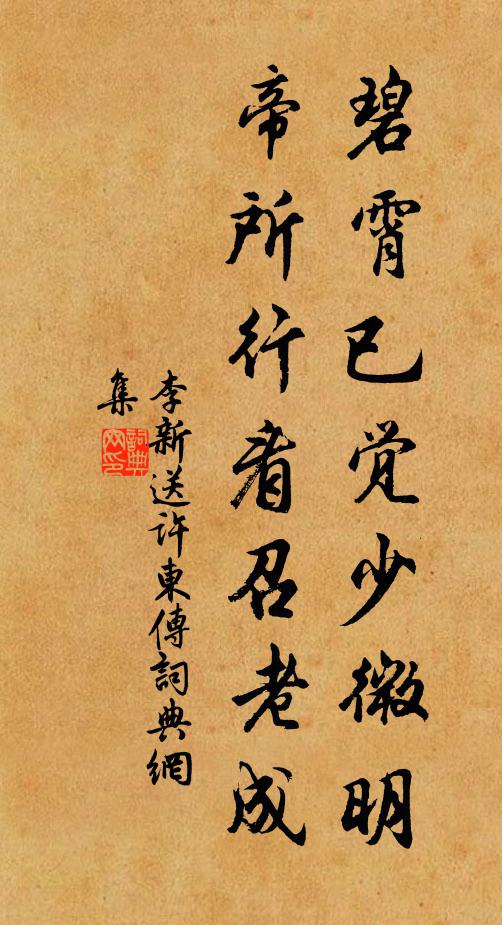 碧霄已觉少微明
帝所行看召老成
李新送许東傳詞典網
集
詞典网印